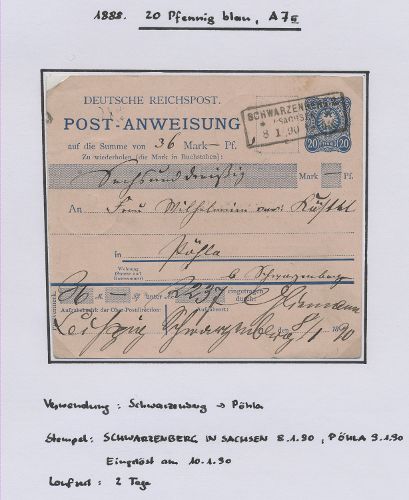 1888. 20 Pfennig blau, A7
DEUTSCHE REICHSPOST.
SCHWARZENBERG
SACHSEN
8 1 90
POST-ANWEISUNG
20 20
auf die Summe von 36 Mark — Pf.
Zu wiederholen (die Mark in Buchstaben):
Sechsunddreißig Mark — Pf.
An Frau Wilhelmine
in Pöhla
Wohnung
b. Schwarzenberg
36 — unter 2237 eingetragen
durch:
Aufgabebezirk der Ober-Postdirection:
Leipzig Schwarzenberg den 8/1 90
Verwendung: Schwarzenberg → Pöhla
Stempel: SCHWARZENBERG IN SACHSEN 8.1.90, PÖHLA 9.1.90
Eingelöst am 10.1.90
Laufzeit: 2 Tage